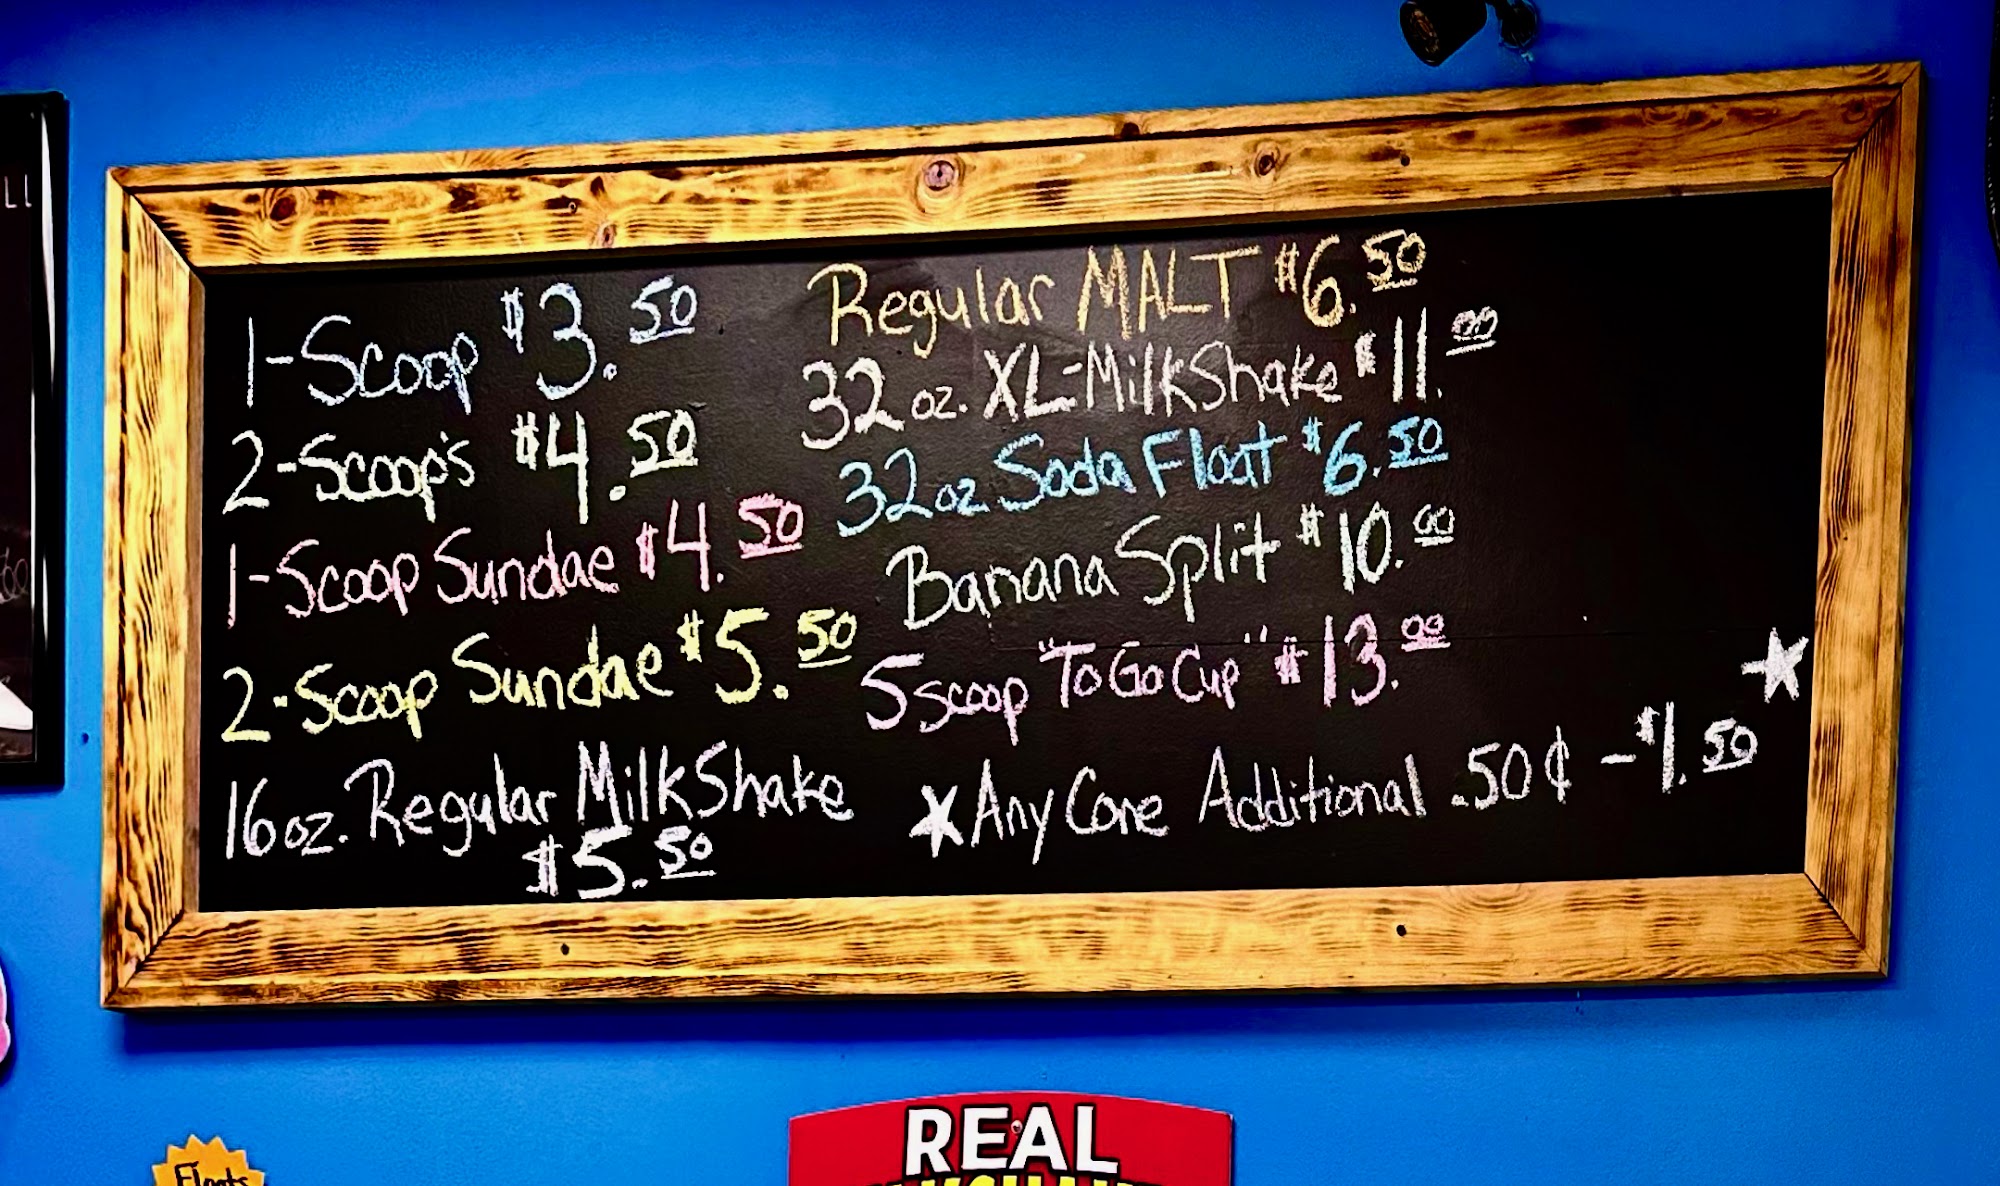 1-Scoop $3.50
2-Scoop's $4.50
1-Scoop Sundae $4.50
2-Scoop Sundae $5.50
16 oz. Regular MilkShake
$5.50
Regular MALT $6.50
32 oz. XL-MilkShake $11.00
32 oz Soda Float $6.50
Banana Split $10.00
5 scoop "To Go Cup" $13.00
*Any Cone Additional .50¢ - $1.50 *
LL
Floats
REAL